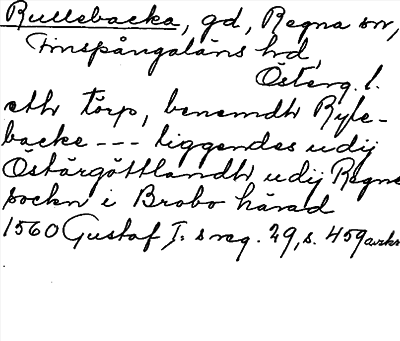 Rullebacka, gd, Regna sn,
Finspångaläns hd,
Österg. l.
ett torp, benemdt Ryle-
backe --- liggendes udij
Östärgöttlandh udij Regne
sockn i Brobo härad
1560 Gustaf I: s reg. 29, s. 459 avskr